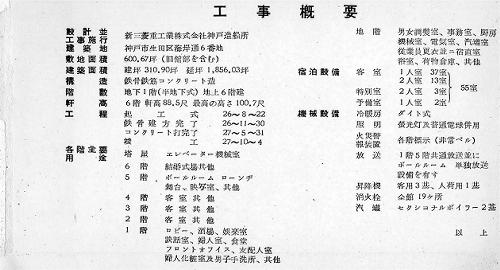 工事概要
設計並 新三菱重工業株式会社神戸造船所
工事施行
建築地 神戸市生田区海岸通6番地
敷地面積 600,67坪（旧館部を含む）
建築面積 建坪310,90坪 延坪1,856,03坪
構造 鉄骨鉄筋コンクリート造
階数 地下1階(半地下式) 地上6階建
軒高 6階軒高88.5尺 最高の高さ100.7尺
工程 起工式 26〜8〜22
鉄骨建方完了 26〜11〜30
コンクリート打完了 27〜5〜31
竣工 27〜10〜4
各階全要 塔屋 エレベーター機械室
用途
6階 結婚式場其他
5階 ボールルーム ローンヂ
舞台、映写室、其他
4階 客室其他
3階 客室其他
2階 客室其他
1階 ロビー、酒場、娯楽室
談話室、婦人室、食堂
フロントオフイス、支配人室
婦人化粧室及男子手洗所、其他
地階 男女調髪室、事務室、厨房
機械室、電気室、汽罐室
従業員更衣並ニ宿直室
浴室、荷物倉庫、其他
宿泊設備 客室 1人室 37室
2人室 13室
2人室 3室
特別室 2人室 2室
予備室 1人室 2室
55室
機械設備 冷暖房 ダイト式
照明 螢光灯及普通電球併用
火災警報装置 各階標示(非常ベル)
放送 1階5階共通放送並に
ボールルーム 単独放送
設備を有す
昇降機 客用3基、人荷用1基
消火栓 全館19ヶ所
汽罐 セクショナルボイラー2基
以上